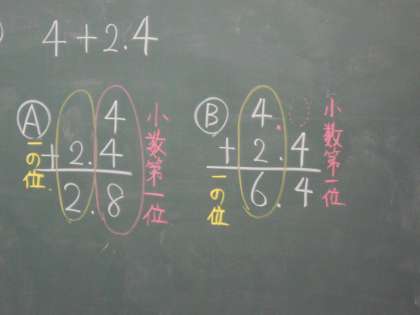 4+2.4
Ⓐ
4
+2.4
2.8
一の位
小数第一位
Ⓑ
4.
+2.4
6.4
一の位
小数第一位